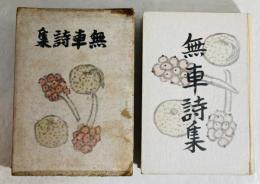 無車詩集
無車詩集